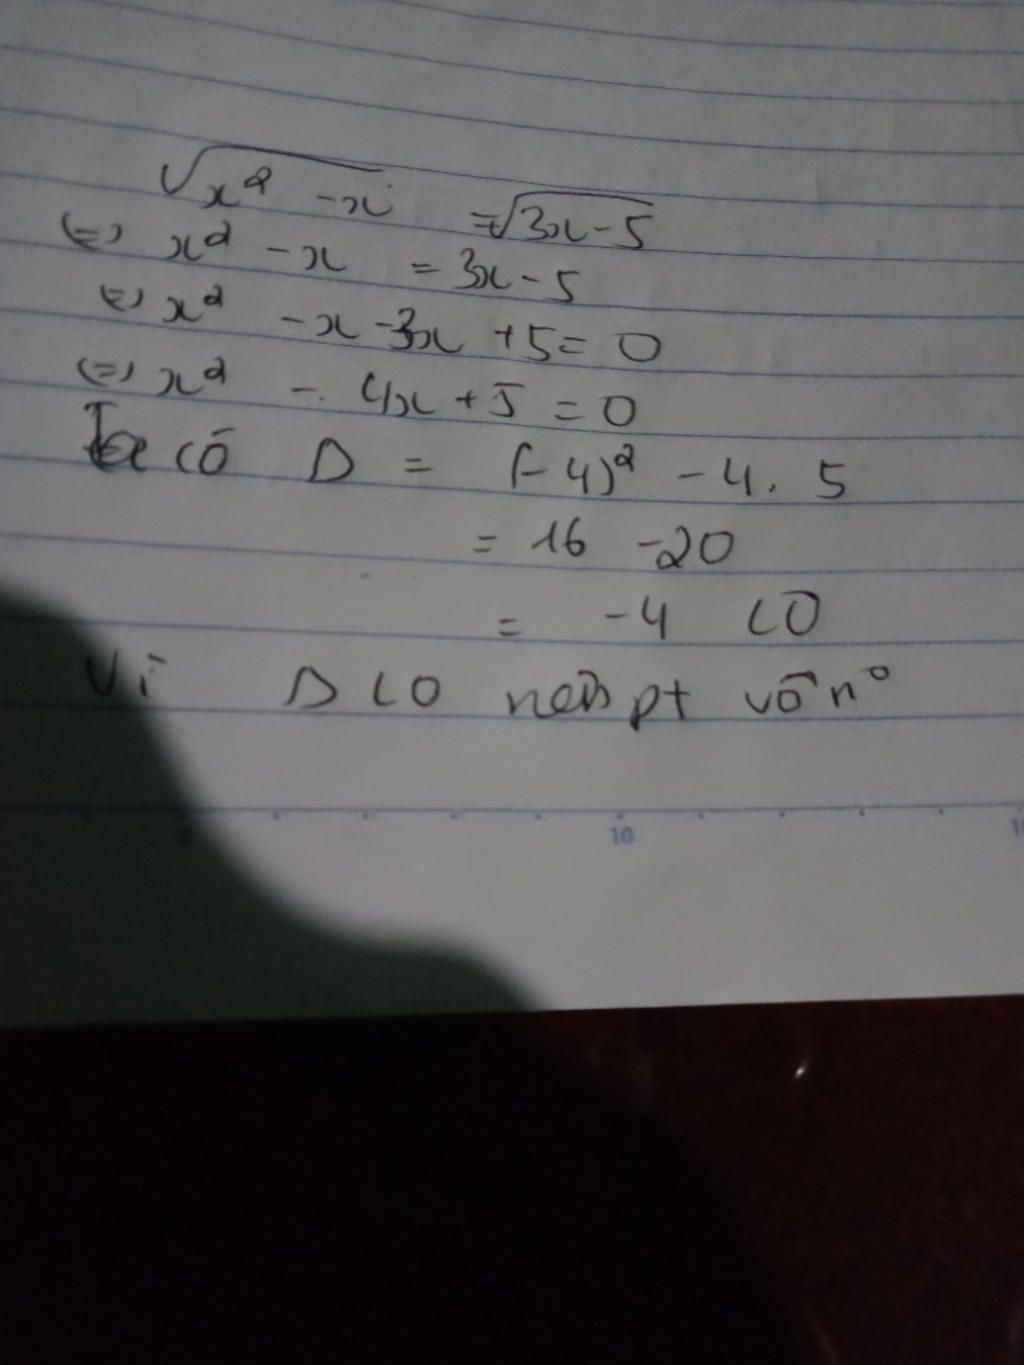 √x² - x = √3x - 5
(=) x² - x = 3x - 5
(=) x² - x - 3x + 5 = 0
(=) x² - 4x + 5 = 0
Ta có Δ = (-4)² - 4. 5
= 16 - 20
= -4 < 0
Vì Δ < 0 nên pt vô n°
10